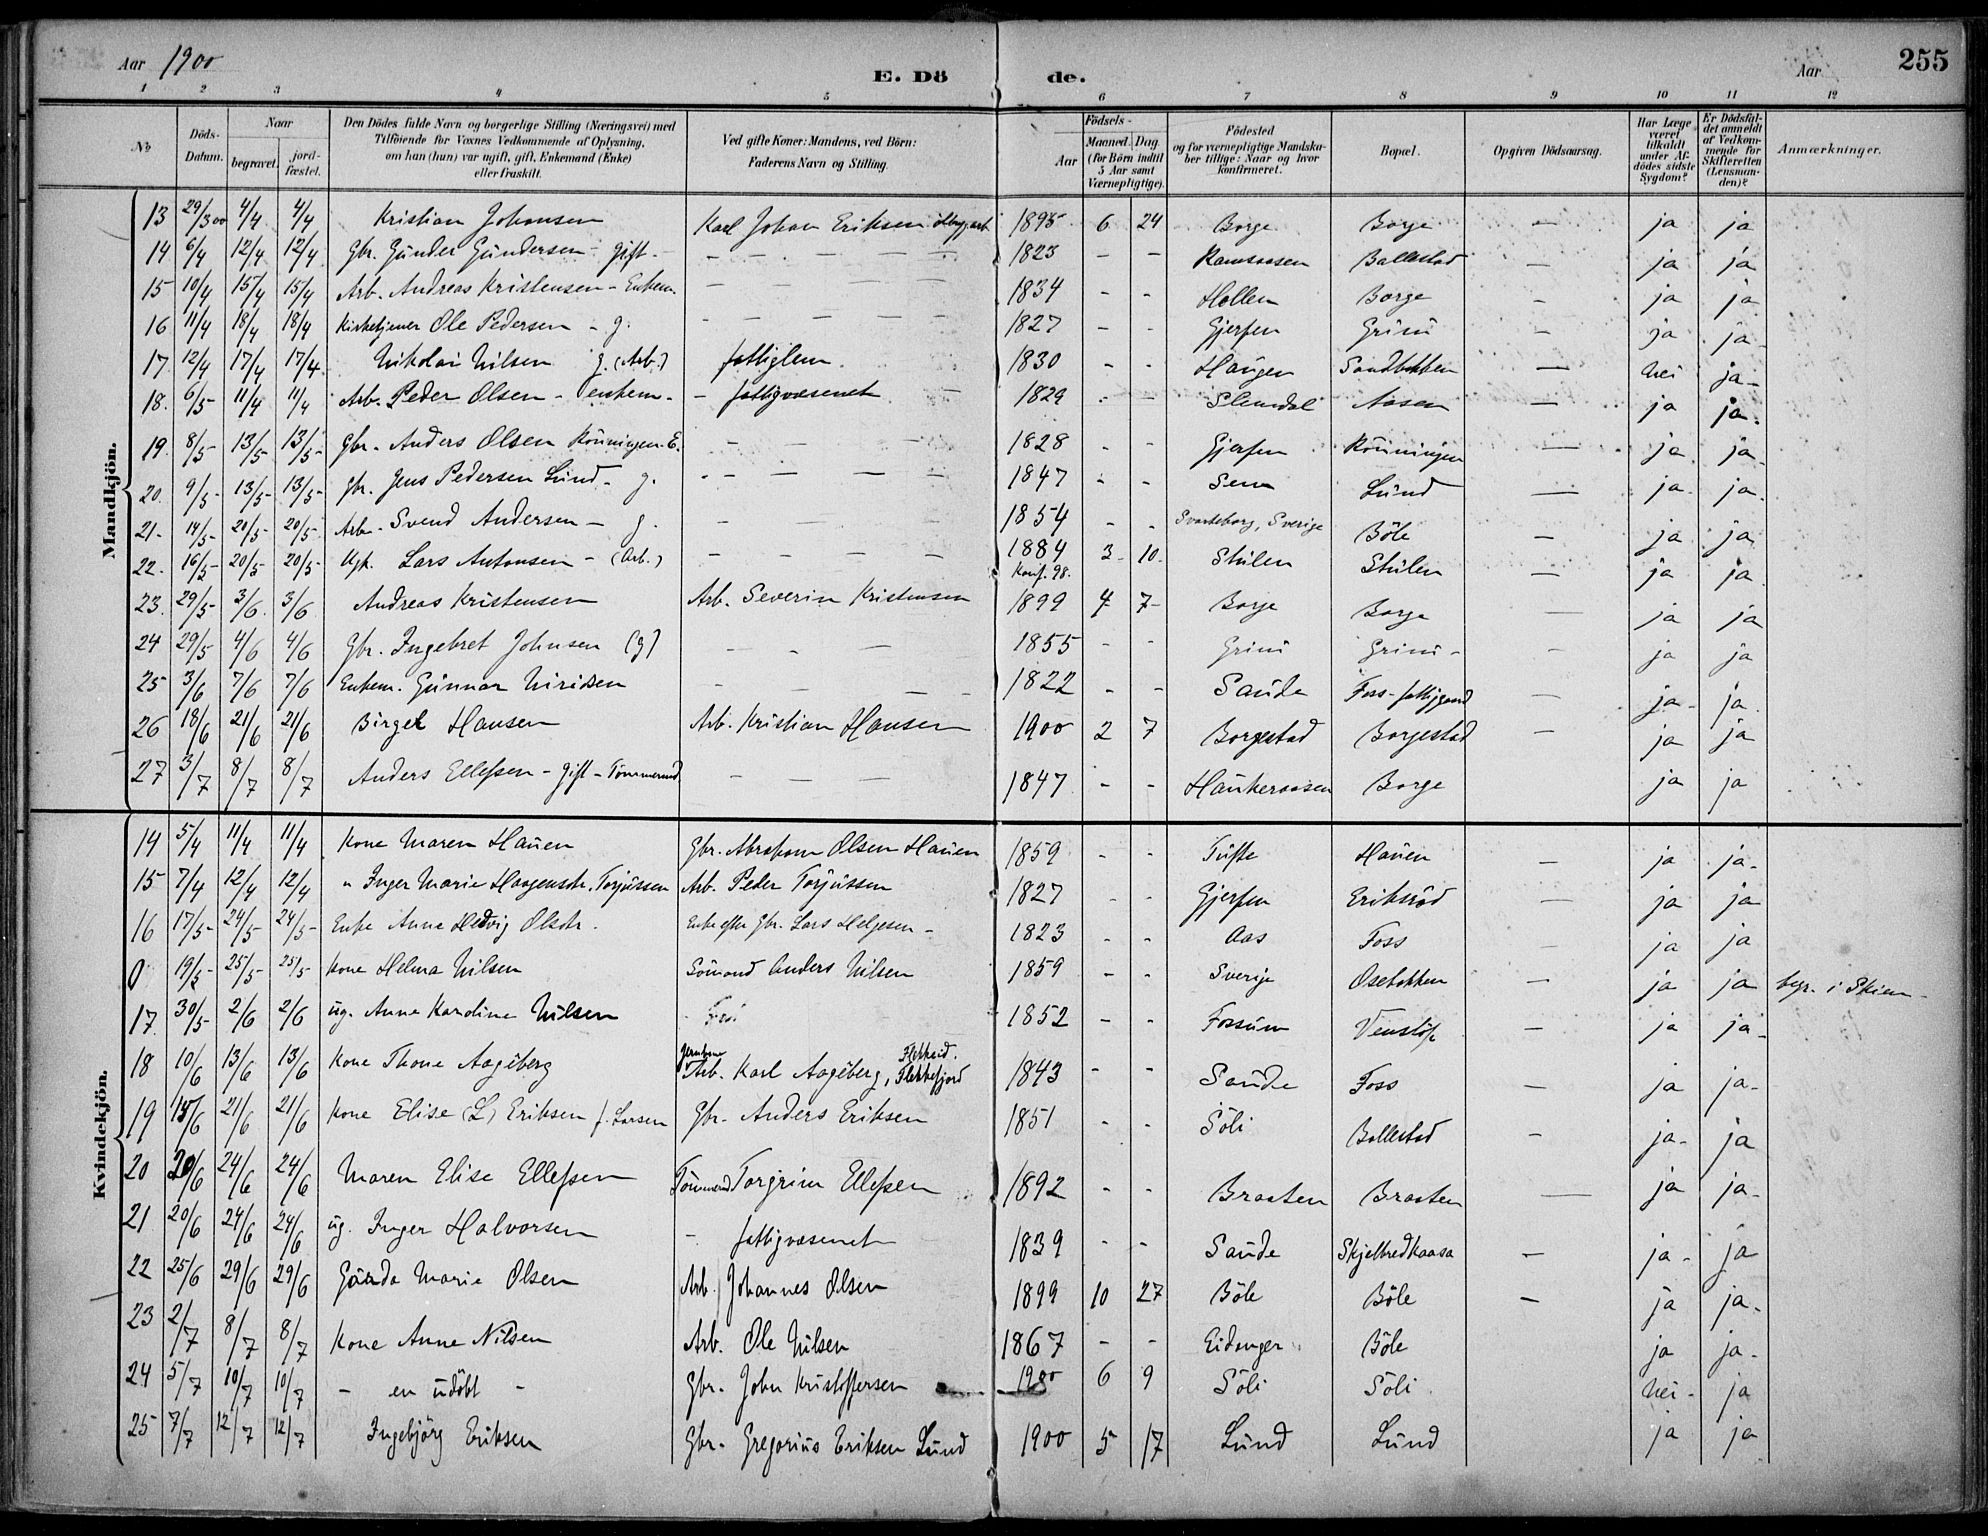 Aar 1900 E. Dö de. Aar 255
1 2 3 4 5 6 7 8 9 10 11 12
No Döds-Datum. Naar begravet. jord-fæstet. Den Dödes fulde Navn og borgerlige Stilling (Næringsvei) med Tilföiende for Voxnes Vedkommende af Oplysning, om han (hun) var ugift, gift, Enkemand (Enke) eller fraskilt. Ved gifte Koner: Mandens, ved Börn: Faderens Navn og Stilling. Födsels- Aar Maaned. Dag. (for Börn indtil 5 Aar samt Værnepligtige). Födested og for værnepligtige Mandska-ber tillige: Naar og hvor konfirmeret. Bopæl. Opgiven Dödsaarsag. Har Læge været tilkaldt under Af-dödes sidste Sygdom? Er Dödsfal-det anmeldt af Vedkom-mende for Skifteretten (Lensman-den)? Anmærkninger.
Mandkjön.
13 29/3 00 4/4 4/4 Kristian Johansen Karl Johan Eriksen 1895 6 24 Borge Borge — ja ja
14 6/4 12/4 12/4 Gbr. Gunder Gundersen - gift - — — — — 1823 - - Ramsaasen Ballestad — ja ja
15 10/4 15/4 15/4 Arb. Andreas Kristensen - Enkem. — — — — 1834 - - Hollen Borge — ja ja
16 11/4 18/4 18/4 Kirketjener Ole Pedersen - g. — — — — 1827 - - Gjerpen Grini — ja ja
17. 12/4 17/4 17/4 Nikolai Nilsen g. (Arb.) fattiglem 1830 - - Haugen Sandbakken — nei ja
18. 6/5 11/4 11/4 Arb. Peder Olsen - enkem. - fattigvæsenet — 1829 - - Slemdal Aasen — ja ja.
19. 8/5 13/5 13/5 Gbr. Anders Olsen Rönningen. E. — — — 1828 - - Gjerpen Rönningen — ja ja
20. 9/5 13/5 13/5 Gbr. Jens Pedersen Lund - g. — — — — 1847 - - Sem Lund — ja ja
21. 14/5 20/5 20/5 Arb. Svend Andersen - g. — — — 1854 - - Svarteborg, Sverige Böle — ja ja
22. 16/5 20/5 20/5 Ugk. Lars Antonsen - (Arb.) — — — — 1884 3 10 Stulen Stulen — ja ja
Konf. 98.
23. 29/5 3/6 3/6 Andreas Kristensen Arb. Severin Kristensen 1899 4 7 Borge Borge — ja ja
24 29/5 4/6 4/6 Gbr. Ingebret Johnsen (g) — — — 1855 - - Grini Grini - ja ja
25 3/6 7/6 7/6 Enkem. Gunnar — — — — 1822 - - Saude Foss - fattiggaard — ja ja
26 18/6 21/6 21/6 Birgel Hansen Arb. Kristian Hansen 1900 2 7 Borgestad Borgestad — ja ja
27 3/7 8/7 8/7 Anders Ellefsen - gift - Tömmermd — — — 1847 - - Haukeraasen Borge ja ja
Kvindekjön.
14 5/4 11/4 11/4 Kone Maren Hauen Gbr. Abraham Olsen Hauen 1859 - - Tufte Hauen — ja ja
15 7/4 12/4 12/4 " Inger Marie Haagensdr. Torjussen Arb. Peder Torjussen 1827 - - Gjerpen Eriksröd — ja ja
16 17/5 24/5 24/5 Enke Anne Hedvig Olsdr. Enke efter Gbr. Lars Helgesen - 1823 - - Aas Foss — ja ja
0 19/5 25/5 25/5 Kone Helena Nilsen Sömand Anders Nilsen 1859 - - Sverige Osebakken — ja ja begr. i Skien -
17. 30/5 2/6 2/6 ug. Anne Karoline Nilsen - 1852 - - Fossum Venstöp — ja ja
18 10/6 13/6 13/6 Kone Thone Aageberg Arb. Karl Aageberg, Flekkefjord 1843 - - Saude Foss — ja ja
19 15/6 21/6 21/6 Kone Elise (L) Eriksen f. Larsen Gbr. Anders Eriksen 1851 - - Söli Ballestad — ja ja
20 20/6 24/6 24/6 Maren Elise Ellefsen Tömmermd Torgrim Ellefsen 1892 - - Braaten Braaten — ja ja
21 20/6 24/6 24/6 ug. Inger Halvorsen - fattigvæsenet 1839 - - Saude Skjelbredkaasa — ja ja
22 25/6 29/6 29/6 Gunda Marie Olsen Arb. Johannes Olsen 1899 10 27 Böle Böle — ja ja
23 2/7 8/7 8/7 Kone Anne Nilsen Arb. Ole Nilsen 1867 - - Eidanger Böle ja ja
24 5/7 10/7 10/7 - en udöbt - Gbr. John Kristoffersen 1900 6 9 Söli Söli nei ja
25 7/7 12/7 12/7 Ingebjörg Eriksen Gbr. Gregorius Eriksen Lund 1900 5 17 Lund Lund ja ja